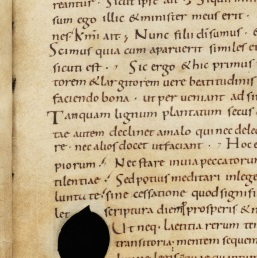 reantur. Sicut ipse ait
sum ego illic & minister meus erit.
Nunc filii dei sumus. &
Scimus quia cum apparuerit similes ei
sicuti est. Sic ergo & hic primus
torem & largitorem vere beatitudinis
faciendo bona. ut per veniant ad
Tamquam lignum plantatum secus
tae autem declinet amalo qui nec delec
re. nec alios docet ut faciant. Hoc e
piorum. Nec stare in via peccatorum
tilentiae. Sed potius meditari in lege
luntate sine cessatione quod signifi
let scriptura diem prosperis &
Ut neq. laetitia rerum
transitoria; mentem sequem